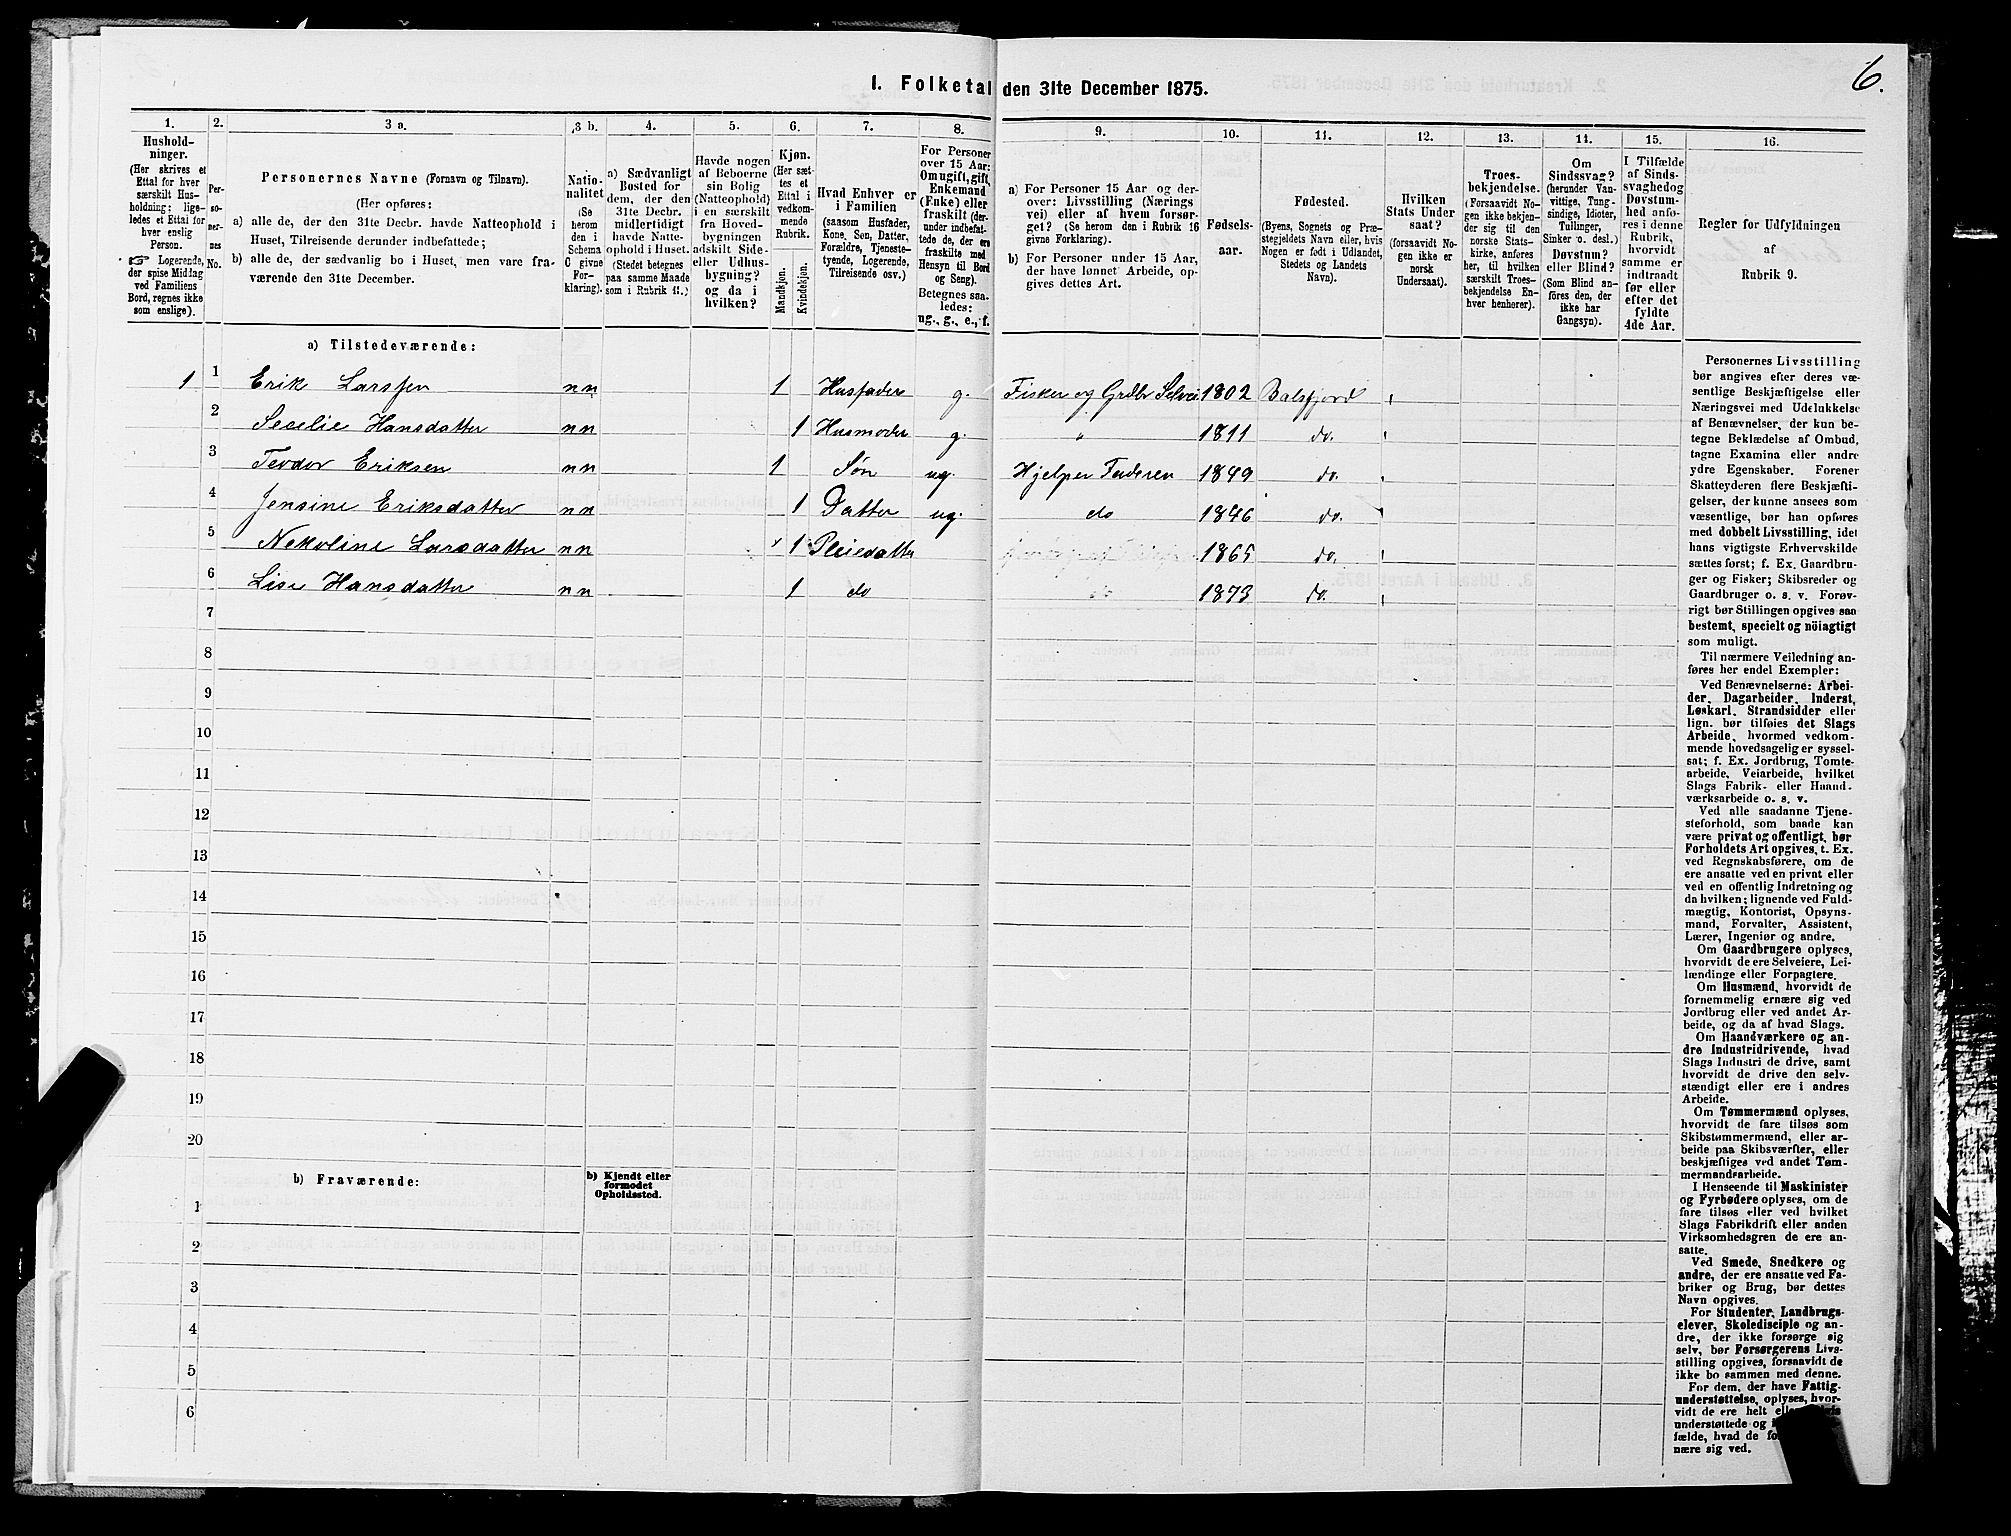 6.
I. Folketal den 31te December 1875.
1.
Hushold-
ninger.
(Her skrives et
Ettal for hver
særskilt Hus-
holdning; lige-
ledes et Ettal for
hver enslig
Person.
☞ Logerende,
der spise Middag
ved Familiens
Bord, regnes ikke
som enslige).
2.
Per-
so-
ner-
nes
No.
3 a.
Personernes Navne (Fornavn og Tilnavn).
(Her opføres:
a) alle de, der den 31te Decbr. havde Natteophold i
Huset, Tilreisende derunder indbefattede;
b) alle de, der sædvanlig bo i Huset, men vare fra-
værende den 31te December.
3 b.
Natio-
nalitet
(Se
herom
den i
Schema
C givne
For-
klaring).
4.
a) Sædvanligt
Bosted for
dem, der den
31te Decbr.
midlertidigt
havde Natte-
ophold i Huset.
(Stedet betegnes
paa samme Maade
som i Rubrik 11.)
5.
Havde nogen
af Beboerne
sin Bolig
(Natteophold)
i en særskilt
fra Hoved-
bygningen
adskilt Side-
eller Udhus-
bygning?
og da i
hvilken?
6.
Kjøn.
(Her sæt-
tes et
Ettal i
vedkom-
mende
Rubrik.
Mandkjøn.
Kvindekjøn.
7.
Hvad Enhver er
i Familien
(saasom Husfader,
Kone, Søn, Datter,
Forældre, Tjeneste-
tyende, Logerende,
Tilreisende osv.)
8.
For Personer
over 15 Aar:
Om ugift, gift,
Enkemand
(Enke) eller
fraskilt (der-
under indbefat-
tede de, der ere
fraskilte med
Hensyn til Bord
og Seng).
Betegnes saa-
ledes:
ug., g., e., f.
9.
a) For Personer 15 Aar og der-
over: Livsstilling (Nærings
vei) eller af hvem forsør-
get? (Se herom den i Rubrik 16
givne Forklaring).
b) For Personer under 15 Aar,
der have lønnet Arbeide, op-
gives dettes Art.
10.
Fødsels-
aar.
11.
Fødested.
(Byens, Sognets og Præ-
stegjeldets Navn eller, hvis
Nogen er født i Udlandet,
Stedets og Landets
Navn).
12.
Hvilken
Stats Under
saat?
(forsaavidt No-
gen ikke er
norsk
Undersaat).
13.
Troes-
bekjendelse.
(Forsaavidt No-
gen ikke bekjen-
der sig til den
norske Stats-
kirke, anføres
her, til hvilken
særskilt Troes-
bekjendelse En-
hver henhører).
14.
Om
Sindssvag?
(herunder Van-
vittige, Tung-
sindige, Idioter,
Tullinger,
Sinker o. desl.)
Døvstum?
eller Blind?
(Som Blind an-
føres den, der
ikke har
Gangsyn).
15.
I Tilfælde
af Sinds-
svaghed og
Døvstum-
hed anfø-
res i denne
Rubrik,
hvorvidt
samme er
indtraadt
før eller
efter det
fyldte
4de Aar.
16.
Regler for Udfyldningen
af
Rubrik 9.
a) Tilstedeværende:
1 1 Erik Larssen nn 1 Husfader g. Fisker og Grdbr Selvei 1802 Balsfjord
2 Seselie Hansdatter nn 1 Husmoder g. " 1811 do.
3 Teodor Eriksen nn 1 Søn ug. Hjelper Faderen 1849 do.
4 Jensine Eriksdatter nn 1 Datter ug. do 1846 do.
5 Nekoline Larsdatter nn 1 Pleiedatter 1865 do.
6 Lise Hansdatter nn 1 do do 1873 do.
7
8
9
10
11
12
13
14
15
16
17
18
19
20
b) Fraværende:
b) Kjendt eller
formodet
Opholdssted.
1
2
3
4
5
6
Personernes Livsstilling
bør angives efter deres væ-
sentlige Beskjæftigelse eller
Næringsvei med Udelukkelse
af Benævnelser, der kun be-
tegne Beklædelse af Ombud,
tagne Examina eller andre
ydre Egenskaber. Forener
Skatteyderen flere Beskjæfti-
gelser, der kunne ansees som
væsentlige, bør han opføres
med dobbelt Livsstilling, idet
hans vigtigste Erhvervskilde
sættes først; f. Ex. Gaardbru-
ger og Fisker; Skibsreder og
Gaardbruger o. s. v. Forøv-
rigt bør Stillingen opgives saa
bestemt, specielt og nöiagtigt
som muligt.
Til nærmere Veiledning an-
føres her endel Exempler:
Ved Benævnelserne: Arbei-
der, Dagarbeider, Inderst,
Løskarl, Strandsidder eller
lign. bør tilføies det Slags
Arbeide, hvormed vedkom-
mende hovedsagelig er syssel-
sat; f. Ex. Jordbrug, Tomte-
arbeide, Veiarbeide, hvilket
Slags Fabrik- eller Haand-
værksarbeide o. s. v.
Ved alle saadanne Tjene-
steforhold, som baade kan
være privat og offentligt, bør
Forholdets Art opgives, t. Ex.
ved Regnskabsførere, om de
ere ansatte ved en privat eller
ved en offentlig Indretning og
da hvilken; lignende ved Fuld-
mægtig, Kontorist, Opsyns-
mand, Forvalter, Assistent,
Lærer, Ingeniør og andre.
Om Gaardbrugere oplyses,
hvorvidt de ere Selveiere, Lei-
lændinge eller Forpagtere.
Om Husmænd, hvorvidt de
fornemmelig ernære sig ved
Jordbrug eller ved andet Ar-
beide, og da af hvad Slags.
Om Haandværkere og an-
dre Industridrivende, hvad
Slags Industri de drive, samt
hvorvidt de drive den selv-
stændigt eller ere i andres
Arbeide.
Om Tømmermænd oplyses,
hvorvidt de fare tilsøs som
Skibstømmermænd, eller ar-
beide paa Skibsværfter, eller
beskjæftiges ved andet Tøm-
mermandsarbeide.
I Henseende til Maskinister
og Fyrbødere oplyses, om de
fare tilsøs eller ved hvilket
Slags Fabrikdrift eller anden
Virksomhedsgren de ere an-
satte.
Ved Smede, Snedkere og
andre, der ere ansatte ved Fa-
briker og Brug, bør dettes
Navn opgives.
For Studenter, Landbrugs-
elever, Skoledisciple og an-
dre, der ikke forsørge sig
selv, bør Forsørgerens Livs-
stilling opgives, forsaavidt de
ikke bo sammen med denne.
For dem, der have Fattig-
understøttelse, oplyses, hvor-
vidt de ere helt
understøttede og
fælde, hvad de
nære sig ved.